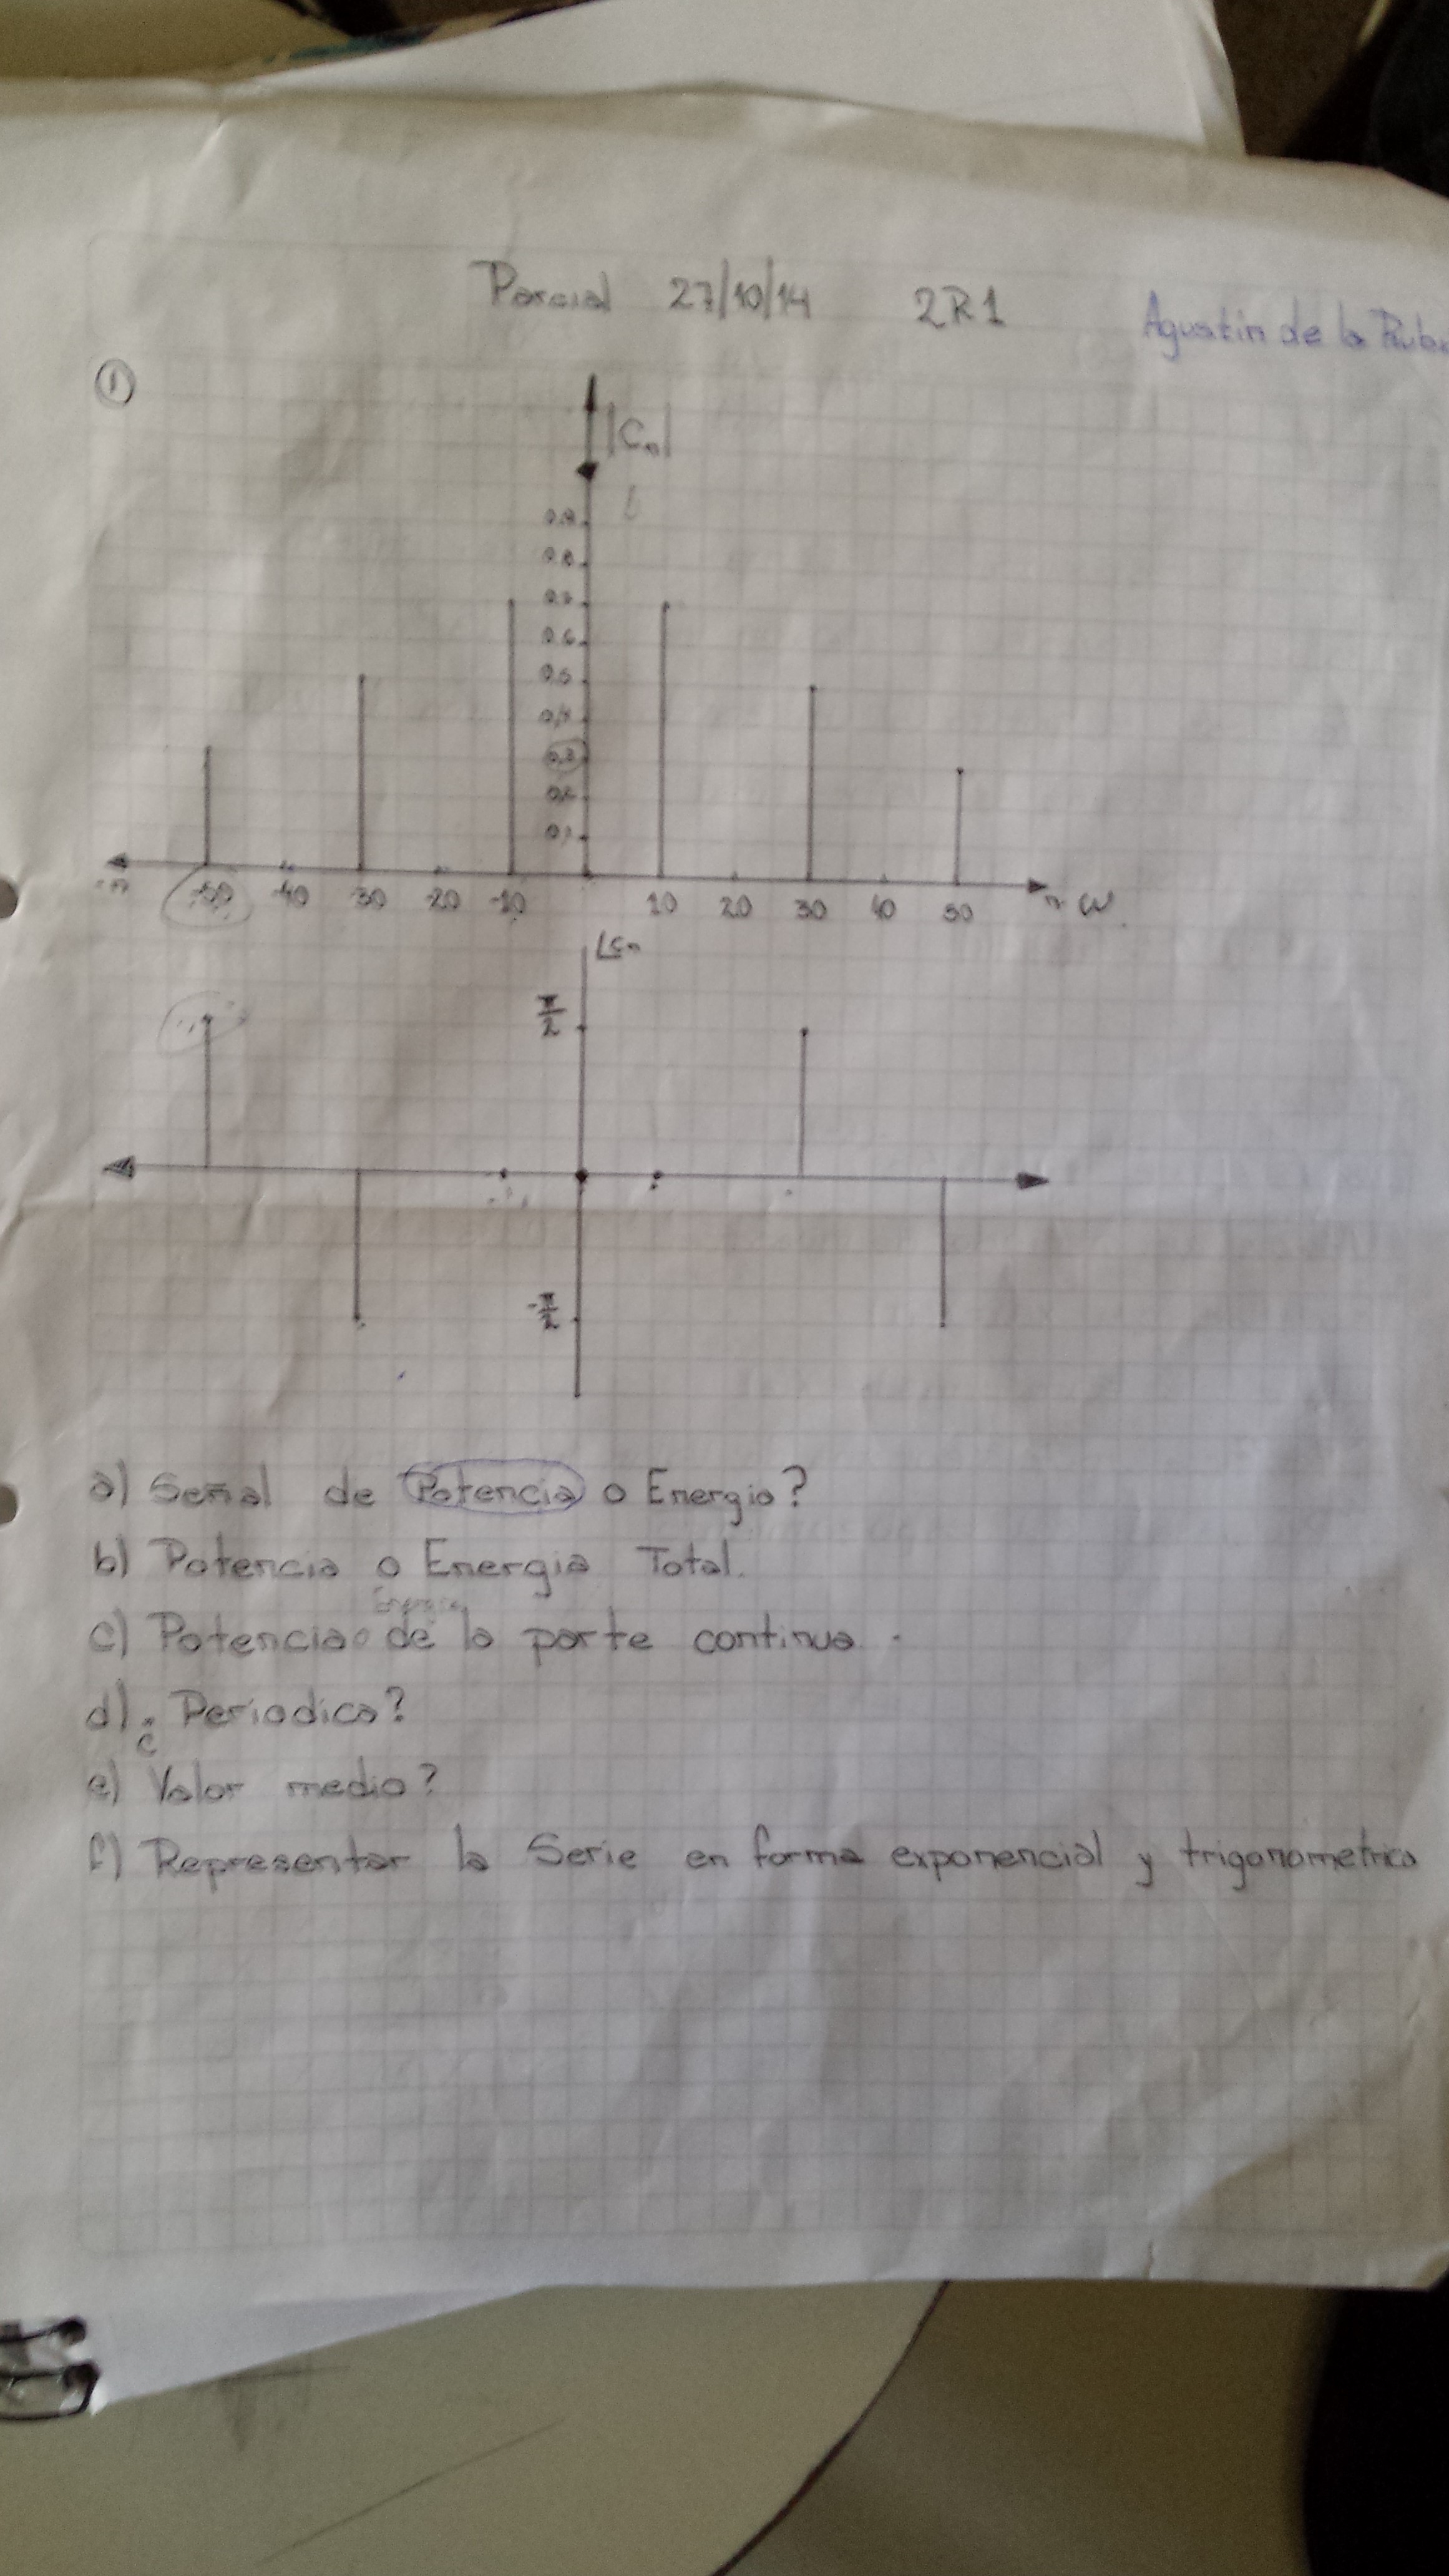 Parcial 27/10/14 2R1
Agustin de la
①
|Cn|
0.9
0.8
0.7
0.6
0.5
0.4
0.3
0.2
0.1
-50 -40 30 -20 -10 10 20 30 40 50 n ω
∠Cn
π/2
-π/2
a) Señal de Potencia o Energia?
b) Potencia o Energia Total.
Energia
c) Potencia o de la parte continua.
d) ¿Periodica?
e) Valor medio?
f) Representar la Serie en forma exponencial y trigonometrica